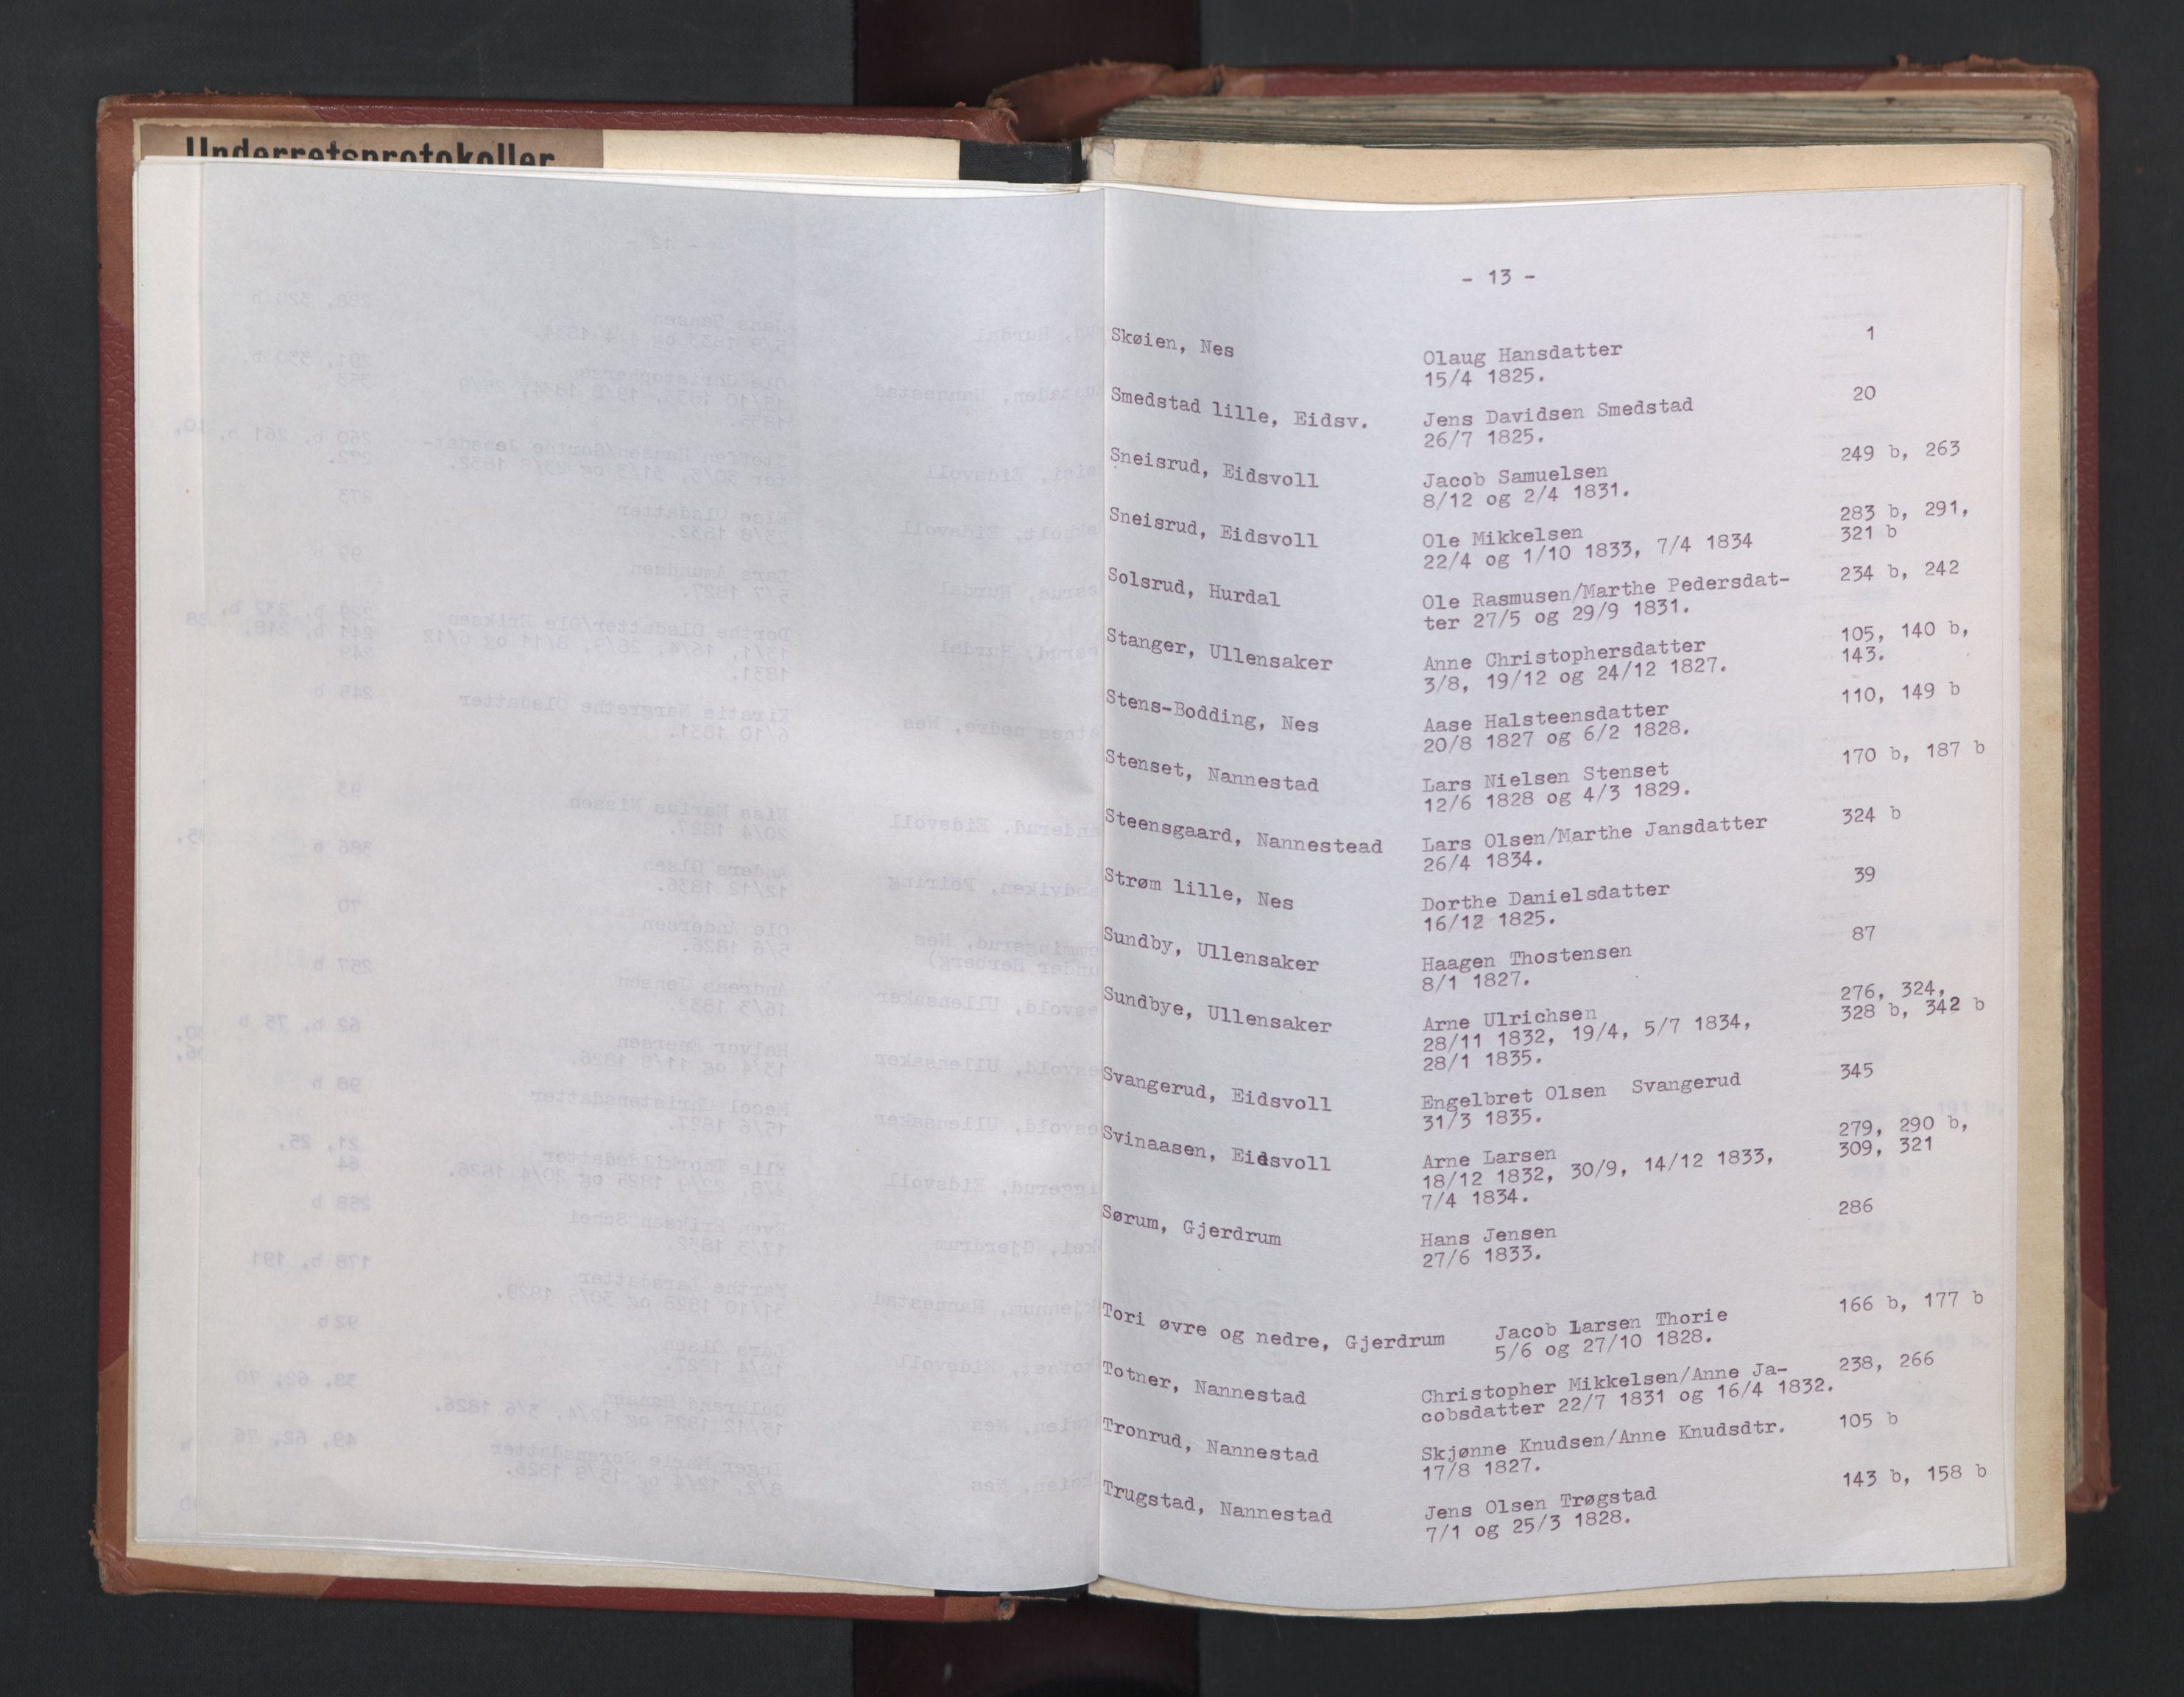 Underretsprotokoller
- 13 -
Skøien, Nes Olaug Hansdatter 1
15/4 1825.
Smedstad lille, Eidsv. Jens Davidsen Smedstad 20
26/7 1825.
Sneisrud, Eidsvoll Jacob Samuelsen 249 b, 263
8/12 og 2/4 1831.
Sneisrud, Eidsvoll Ole Mikkelsen 283 b, 291,
22/4 og 1/10 1833, 7/4 1834 321 b
Solsrud, Hurdal Ole Rasmusen/Marthe Pedersdat- 234 b, 242
ter 27/5 og 29/9 1831.
Stanger, Ullensaker Anne Christophersdatter 105, 140 b,
3/8, 19/12 og 24/12 1827. 143.
Stens-Bodding, Nes Aase Halsteensdatter 110, 149 b
20/8 1827 og 6/2 1828.
Stenset, Nannestad Lars Nielsen Stenset 170 b, 187 b
12/6 1828 og 4/3 1829.
Steensgaard, Nannestead Lars Olsen/Marthe Jansdatter 324 b
26/4 1834.
Strøm lille, Nes Dorthe Danielsdatter 39
16/12 1825.
Sundby, Ullensaker Haagen Thostensen 87
8/1 1827.
Sundbye, Ullensaker Arne Ulrichsen 276, 324,
28/11 1832, 19/4, 5/7 1834, 328 b, 342 b
28/1 1835.
Svangerud, Eidsvoll Engelbret Olsen Svangerud 345
31/3 1835.
Svinaasen, Eidsvoll Arne Larsen 279, 290 b,
18/12 1832, 30/9, 14/12 1833, 309, 321
7/4 1834.
Sørum, Gjerdrum Hans Jensen 286
27/6 1833.
Tori øvre og nedre, Gjerdrum Jacob Larsen Thorie 166 b, 177 b
5/6 og 27/10 1828.
Totner, Nannestad Christopher Mikkelsen/Anne Ja- 238, 266
cobsdatter 22/7 1831 og 16/4 1832.
Tronrud, Nannestad Skjønne Knudsen/Anne Knudsdtr. 105 b
17/8 1827.
Trugstad, Nannestad Jens Olsen Trøgstad 143 b, 158 b
7/1 og 25/3 1828.